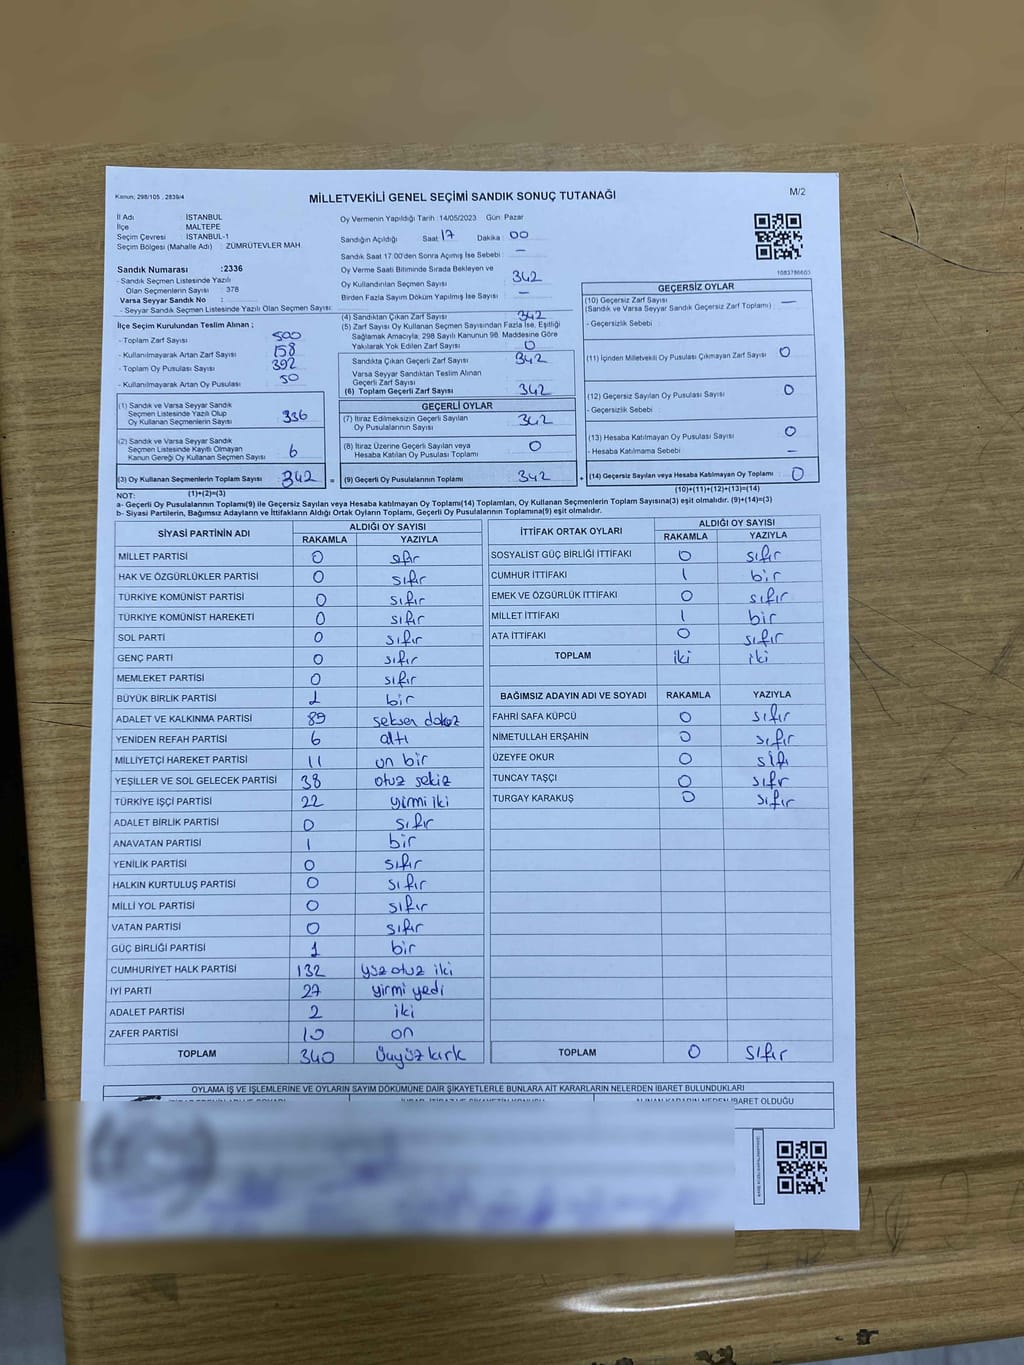 Kanun; 298/105 , 2839/4
MİLLETVEKİLİ GENEL SEÇİMİ SANDIK SONUÇ TUTANAĞI
M/2
İl Adı : İSTANBUL
İlçe : MALTEPE
Seçim Çevresi : İSTANBUL-1
Seçim Bölgesi (Mahalle Adı) : ZÜMRÜTEVLER MAH.
Sandık Numarası :2336
- Sandık Seçmen Listesinde Yazılı
Olan Seçmenlerin Sayısı : 378
Varsa Seyyar Sandık No :
- Seyyar Sandık Seçmen Listesinde Yazılı Olan Seçmen Sayısı:
İlçe Seçim Kurulundan Teslim Alınan ;
- Toplam Zarf Sayısı : 500
- Kullanılmayarak Artan Zarf Sayısı : 158
- Toplam Oy Pusulası : 392
- Kullanılmayarak Artan Oy Pusulası : 50
(1) Sandık ve Varsa Seyyar Sandık
Seçmen Listesinde Yazılı Olup
Oy Kullanan Seçmenlerin Sayısı 336
(2) Sandık ve Varsa Seyyar Sandık
Seçmen Listesinde Kayıtlı Olmayan
Kanun Gereği Oy Kullanan Seçmen Sayısı 6
(3) Oy Kullanan Seçmenlerin Toplam Sayısı 342 =
Oy Vermenin Yapıldığı Tarih : 14/05/2023 Gün: Pazar
Sandığın Açıldığı Saat 17 Dakika : 00
Sandık Saat 17:00'den Sonra Açımış İse Sebebi : —
Oy Verme Saati Bitiminde Sırada Bekleyen ve
Oy Kullandırılan Seçmen Sayısı : 342
Birden Fazla Sayım Döküm Yapılmış İse Sayısı : —
(4) Sandıktan Çıkan Zarf Sayısı : 342
(5) Zarf Sayısı Oy Kullanan Seçmen Sayısından Fazla İse, Eşitliği
Sağlamak Amacıyla; 298 Sayılı Kanunun 98. Maddesine Göre
Yakılarak Yok Edilen Zarf Sayısı : 0
Sandıkta Çıkan Geçerli Zarf Sayısı : 342
Varsa Seyyar Sandıktan Teslim Alınan
Geçerli Zarf Sayısı :
(6) Toplam Geçerli Zarf Sayısı : 342
GEÇERLİ OYLAR
(7) İtiraz Edilmeksizin Geçerli Sayılan
Oy Pusulalarının Sayısı : 342
(8) İtiraz Üzerine Geçerli Sayılan veya
Hesaba Katılan Oy Pusulası Toplamı : 0
(9) Geçerli Oy Pusulalarının Toplamı : 342 +
1083786603
GEÇERSİZ OYLAR
(10) Geçersiz Zarf Sayısı : —
(Sandık ve Varsa Seyyar Sandık Geçersiz Zarf Toplamı)
- Geçersizlik Sebebi :
(11) İçinden Milletvekili Oy Pusulası Çıkmayan Zarf Sayısı : 0
(12) Geçersiz Sayılan Oy Pusulası Sayısı : 0
- Geçersizlik Sebebi :
(13) Hesaba Katılmayan Oy Pusulası Sayısı : 0
- Hesaba Katılmama Sebebi : —
(14) Geçersiz Sayılan veya Hesaba Katılmayan Oy Toplamı : 0
NOT: (1)+(2)=(3)
(10)+(11)+(12)+(13)=(14)
a- Geçerli Oy Pusulalarının Toplam(9) ile Geçersiz Sayılan veya Hesaba Katılmayan Oy Toplam(14) Toplamları, Oy Kullanan Seçmenlerin Toplam Sayısına(3) eşit olmalıdır. (9)+(14)=(3)
b- Siyasi Partilerin, Bağımsız Adayların ve İttifakların Aldığı Ortak Oyların Toplamı, Geçerli Oy Pusulalarının Toplamına(9) eşit olmalıdır.
SİYASİ PARTİNİN ADI ALDIĞI OY SAYISI
RAKAMLA YAZIYLA
MİLLET PARTİSİ 0 sıfır
HAK VE ÖZGÜRLÜKLER PARTİSİ 0 sıfır
TÜRKİYE KOMÜNİST PARTİSİ 0 sıfır
TÜRKİYE KOMÜNİST HAREKETİ 0 sıfır
SOL PARTİ 0 sıfır
GENÇ PARTİ 0 sıfır
MEMLEKET PARTİSİ 0 sıfır
BÜYÜK BİRLİK PARTİSİ 1 bir
ADALET VE KALKINMA PARTİSİ 89 seksen dokuz
YENİDEN REFAH PARTİSİ 6 altı
MİLLİYETÇİ HAREKET PARTİSİ 11 on bir
YEŞİLLER VE SOL GELECEK PARTİSİ 38 otuz sekiz
TÜRKİYE İŞÇİ PARTİSİ 22 yirmi iki
ADALET BİRLİK PARTİSİ 0 sıfır
ANAVATAN PARTİSİ 1 bir
YENİLİK PARTİSİ 0 sıfır
HALKIN KURTULUŞ PARTİSİ 0 sıfır
MİLLİ YOL PARTİSİ 0 sıfır
VATAN PARTİSİ 0 sıfır
GÜÇ BİRLİĞİ PARTİSİ 1 bir
CUMHURİYET HALK PARTİSİ 132 yüz otuz iki
İYİ PARTİ 27 yirmi yedi
ADALET PARTİSİ 2 iki
ZAFER PARTİSİ 10 on
TOPLAM 340 üçyüz kırk
İTTİFAK ORTAK OYLARI ALDIĞI OY SAYISI
RAKAMLA YAZIYLA
SOSYALİST GÜÇ BİRLİĞİ İTTİFAKI 0 sıfır
CUMHUR İTTİFAKI 1 bir
EMEK VE ÖZGÜRLÜK İTTİFAKI 0 sıfır
MİLLET İTTİFAKI 1 bir
ATA İTTİFAKI 0 sıfır
TOPLAM iki iki
BAĞIMSIZ ADAYIN ADI VE SOYADI RAKAMLA YAZIYLA
FAHRİ SAFA KÜPCÜ 0 sıfır
NİMETULLAH ERŞAHİN 0 sıfır
ÜZEYFE OKUR 0 sıfı
TUNCAY TAŞÇI 0 sıfır
TURGAY KARAKUŞ 0 sıfır
TOPLAM 0 sıfır
OYLAMA İŞ VE İŞLEMLERİNE VE OYLARIN SAYIM DÖKÜMÜNE DAİR ŞİKAYETLERLE BUNLARA AİT KARARLARIN NELERDEN İBARET BULUNDUKLARI
ALINAN KARARIN NEDEN İBARET OLDUĞU